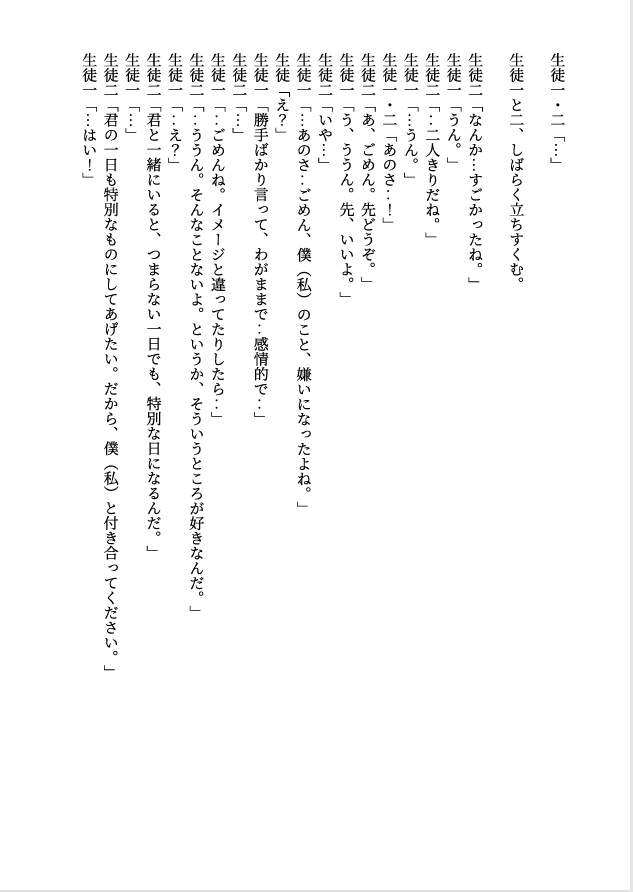 生徒一・二「…」
生徒一と二、しばらく立ちすくむ。
生徒二「なんか…すごかったね。」
生徒一「うん。」
生徒二「‥二人きりだね。」
生徒一「…うん。」
生徒一・二「あのさ‥！」
生徒二「あ、ごめん。先どうぞ。」
生徒一「う、ううん。先、いいよ。」
生徒二「いや…」
生徒一「…あのさ‥ごめん、僕（私）のこと、嫌いになったよね。」
生徒「え？」
生徒一「勝手ばかり言って、わがままで‥感情的で‥」
生徒二「…」
生徒一「‥ごめんね。イメージと違ってたりしたら‥」
生徒二「‥ううん。そんなことないよ。というか、そういうところが好きなんだ。」
生徒一「‥え？」
生徒二「君と一緒にいると、つまらない一日でも、特別な日になるんだ。」
生徒一「…」
生徒二「君の一日も特別なものにしてあげたい。だから、僕（私）と付き合ってください。」
生徒一「…はい！」